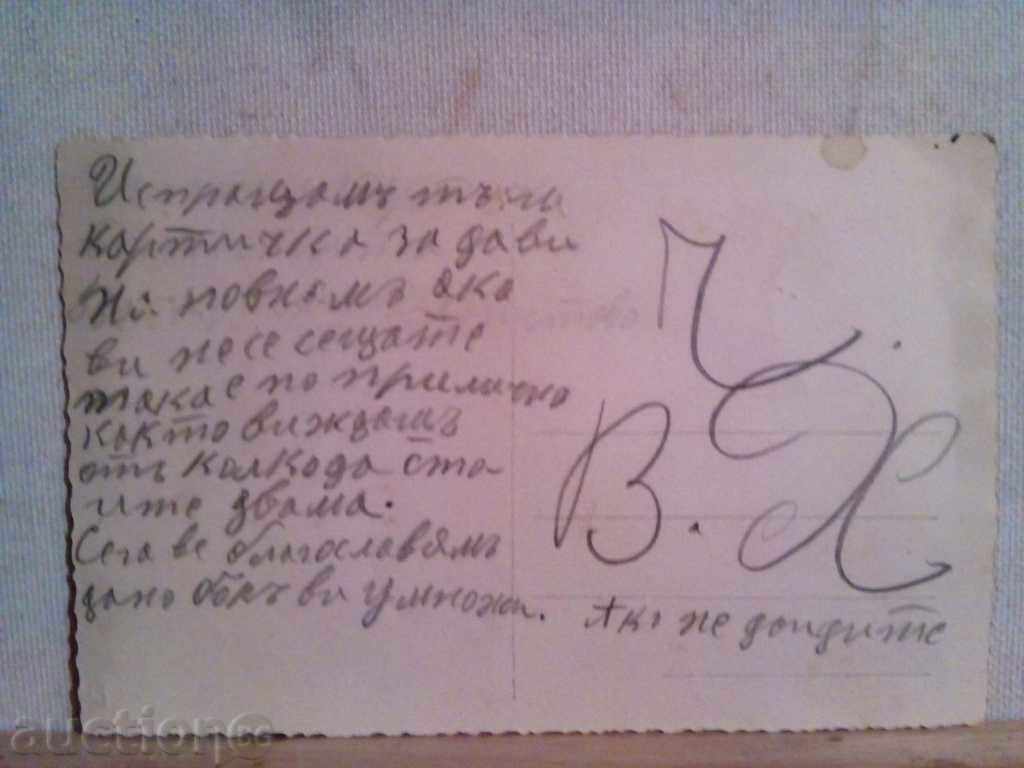 Испращамъ тъзи
картичка за дави
на повкамъ ако
ви несе сещате
така е по прилично
както виждашъ
отъ колкода сто
ите двама.
Сега ве благославямъ
дано богъ ви умножи.
Ч.
В. Х
Ако не дойдите
auction